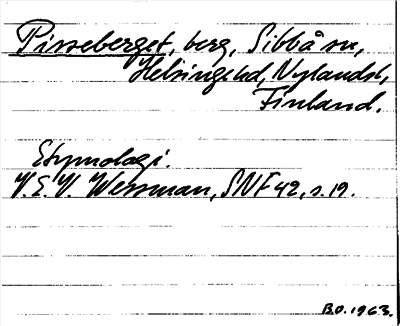 Pisseberget, berg, Sibbå sn,
Helsinge hd, Nylands l,
Finland.
Etymologi.
V.E.V. Wessman, SNF 42, s. 19.
B.O. 1963.